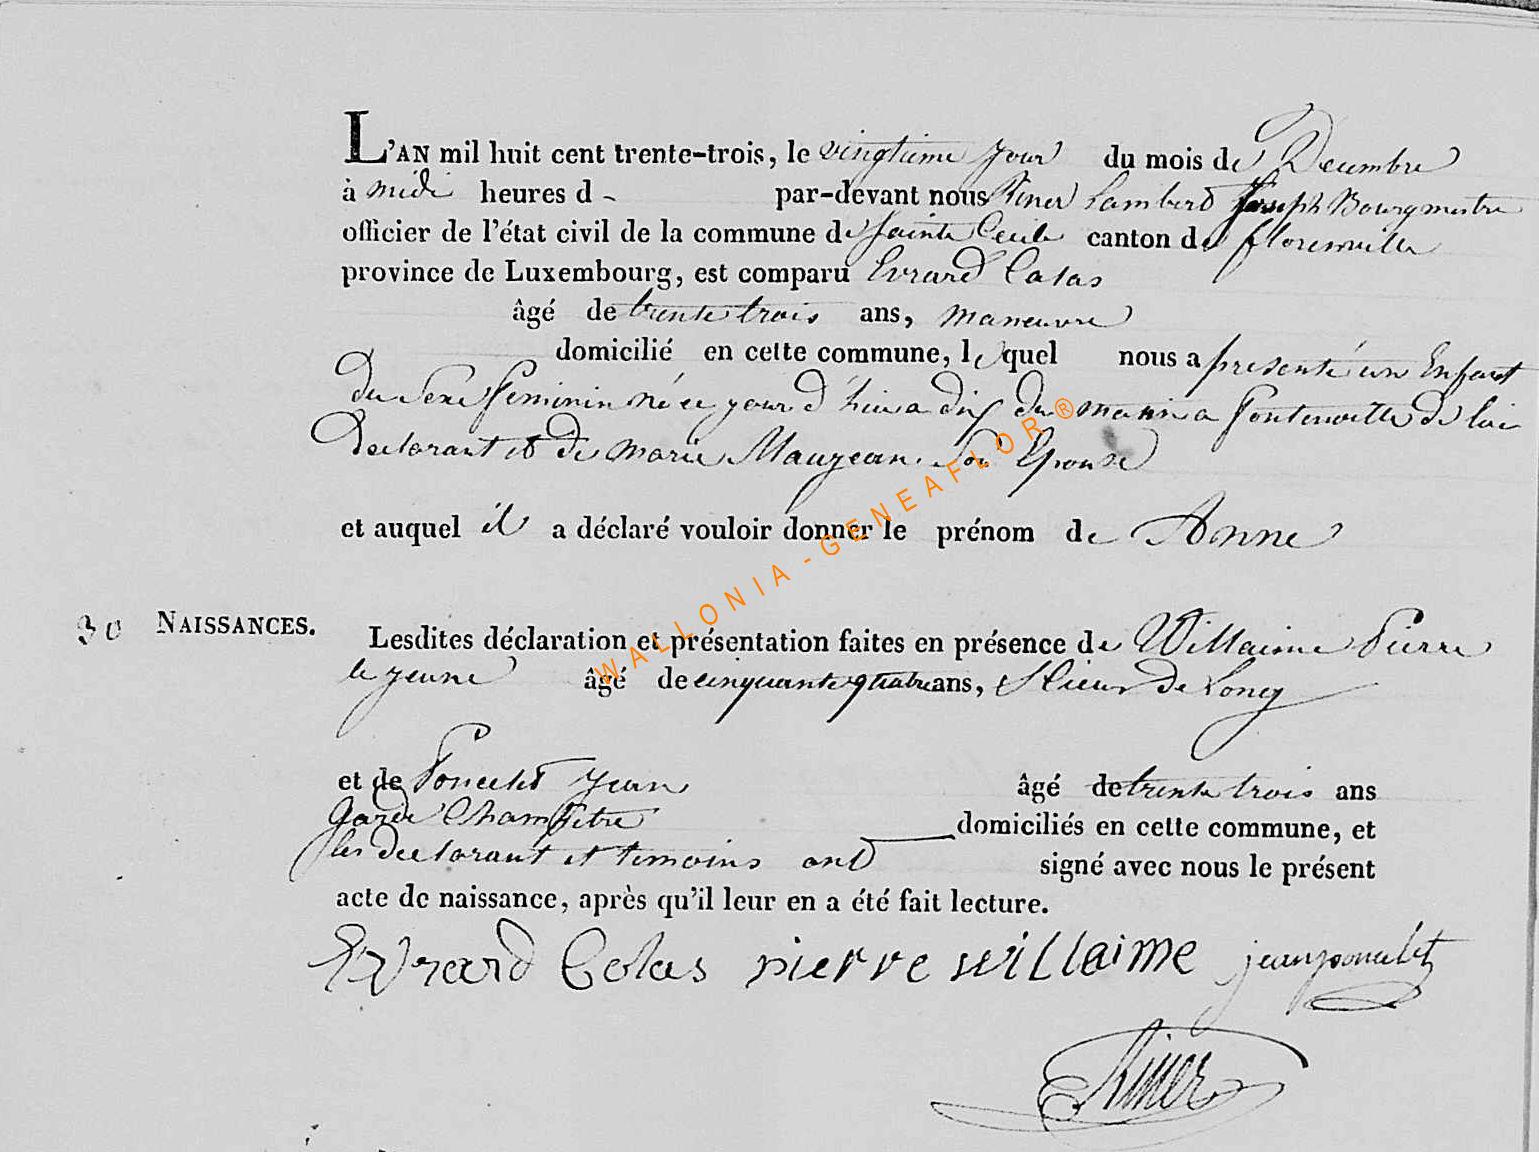 L'AN mil huit cent trente-trois, le vingtieme jour du mois de Decembre
à midi heures d - par-devant nous Riner Lambert Joseph Bourgmestre
officier de l'état civil de la commune de Sainte Cecile canton de florenville
province de Luxembourg, est comparu Evrard Colas
âgé de trente trois ans, maneuvre
domicilié en cette commune, lequel nous a presenté un Enfant
du sexe feminin né ce jour d'hui a dix du matin a Fontenoille de lui
declarant et de marie Mauzean son Epouse
et auquel il a déclaré vouloir donner le prénom de Anne
30 NAISSANCES.
Lesdites déclaration et présentation faites en présence de Willaime Pierre
le jeune âgé de cinquante quatre ans, de Loncy
et de Poncelet Jean âgé de trente trois ans
Garde Champetre domiciliés en cette commune, et
les declarant et temoins ont signé avec nous le présent
acte de naissance, après qu'il leur en a été fait lecture.
Evrard Colas pierre willaime jean poncelet
Riner
WALLONIA - GENEAFLOR ®